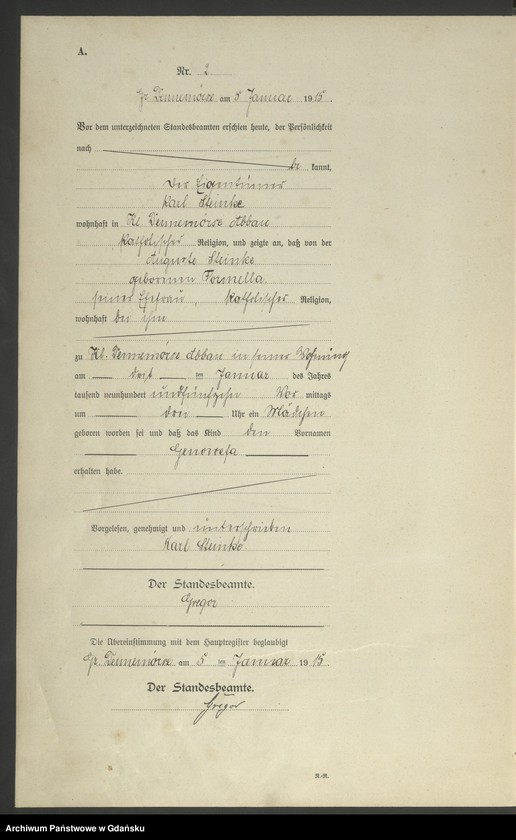 A.
Nr. 2
Gr. Dennemörse am 5 Januar 1915.
Vor dem unterzeichneten Standesbeamten erschien heute, der Persönlichkeit
nach
be kannt,
Der Eigentümer
Karl Steinke
wohnhaft in Kl Dennemörse Abbau
katholischer Religion, und zeigte an, daß von der
Auguste Steinke
geborenen Formella
seiner Ehefrau, katholischer Religion,
wohnhaft bei ihm
zu Kl. Dennemörse Abbau in seiner Wohnung
am drei ten Januar des Jahres
tausend neunhundert undfünfzehn Vor mittags
um drei Uhr ein Mädchen
geboren worden sei und daß das Kind den Vornamen
Genowefa
erhalten habe.
Vorgelesen, genehmigt und unterschrieben
Karl Steinke
Der Standesbeamte.
Gregor
Die Übereinstimmung mit dem Hauptregister beglaubigt
Gr. Dennemörse am 5 ten Januar 1915.
Der Standesbeamte.
Gregor
Archiwum Państwowe w Gdańsku